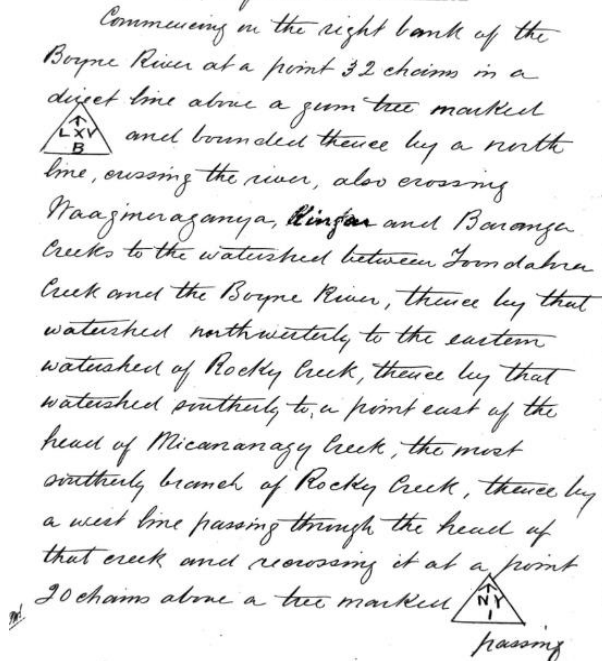 Commencing on the right bank of the
Boyne River at a point 32 chains in a
direct line above a gum tree marked
↑ LXV B and bounded thence by a north
line, crossing the river, also crossing
and Baronga
Creeks to the watershed between
Creek and the Boyne River, thence by that
watershed northwesterly to the eastern
watershed of Rocky Creek, thence by that
watershed southerly to a point east of the
head of Micananagy Creek, the most
southerly branch of Rocky Creek, thence by
a west line passing through the head of
that creek and recrossing it at a point
20 chains above a tree marked ↑ NY 1
passing